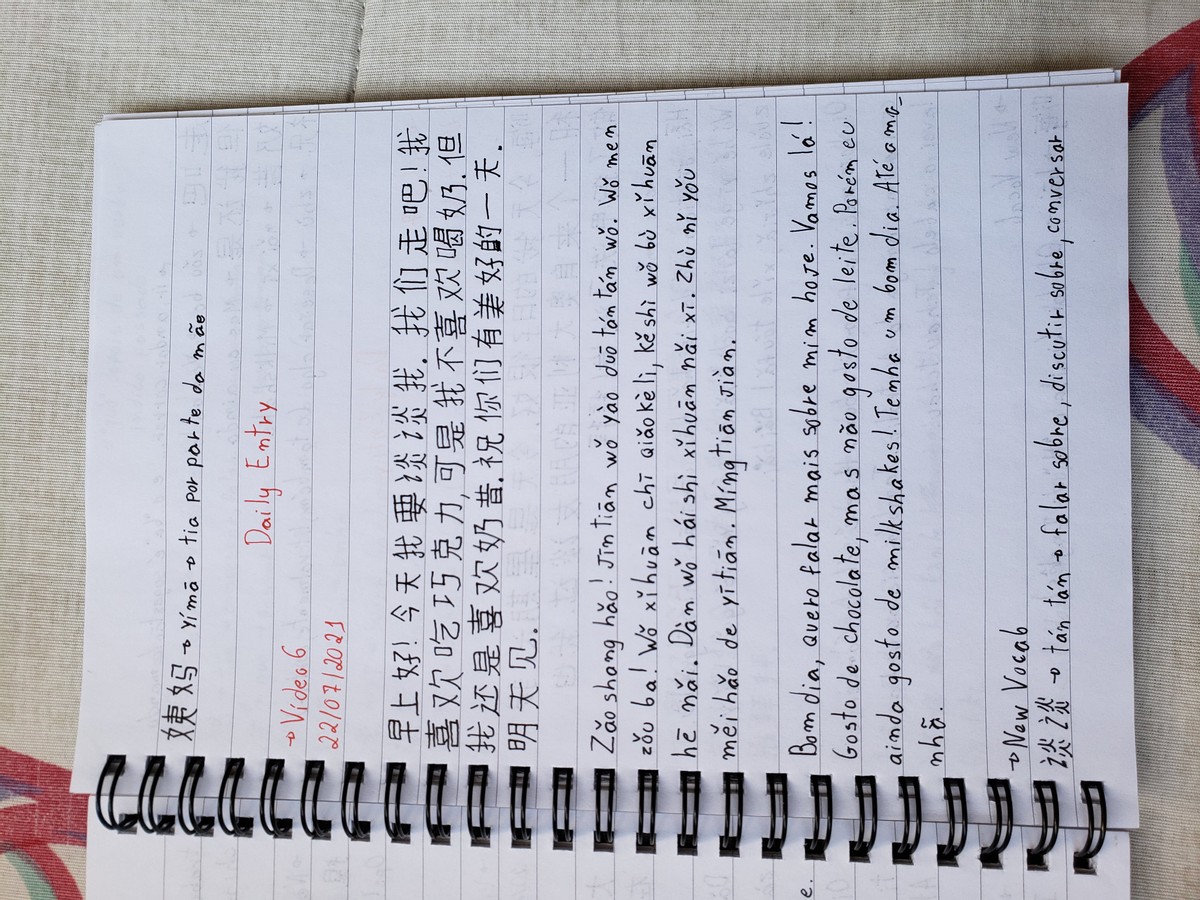 姨妈 → yímā → tia por parte da mãe
Daily Entry
→ Video 6
22/07/2021
早上好!今天我要谈谈我.我们走吧!我
喜欢吃巧克力,可是我不喜欢喝奶.但
我还是喜欢奶昔.祝你们有美好的一天.
明天见.
Zǎo shang hǎo! Jīn tiān wǒ yào duō tán tán wǒ. Wǒ men
zǒu ba! Wǒ xǐhuān chī qiǎokèlì, kěshì wǒ bù xǐhuān
hē nǎi. Dàn wǒ háishì xǐhuān nǎi xī. Zhù nǐ yǒu
měi hǎo de yītiān. Míngtiān jiàn.
Bom dia, quero falar mais sobre mim hoje. Vamos lá!
Gosto de chocolate, mas não gosto de leite. Porém eu
ainda gosto de milkshakes! Tenha um bom dia. Até ama_
nhã.
→ New Vocab
谈谈 → tán tán → falar sobre, discutir sobre, conversar.
e.